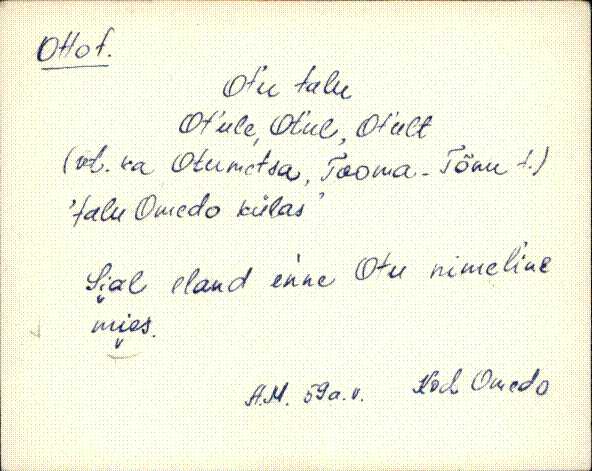 Otto t.
Ot'u talu
Ot'ule, Ot'ul, Ot'ult
(vt. ka Otumetsa, Tooma-Tõnu t.)
'talu Omedo külas'
Si̬al eland en'ne Otu nimeline
mi̬es.
A.M. 59 a. v. Kod Omedo